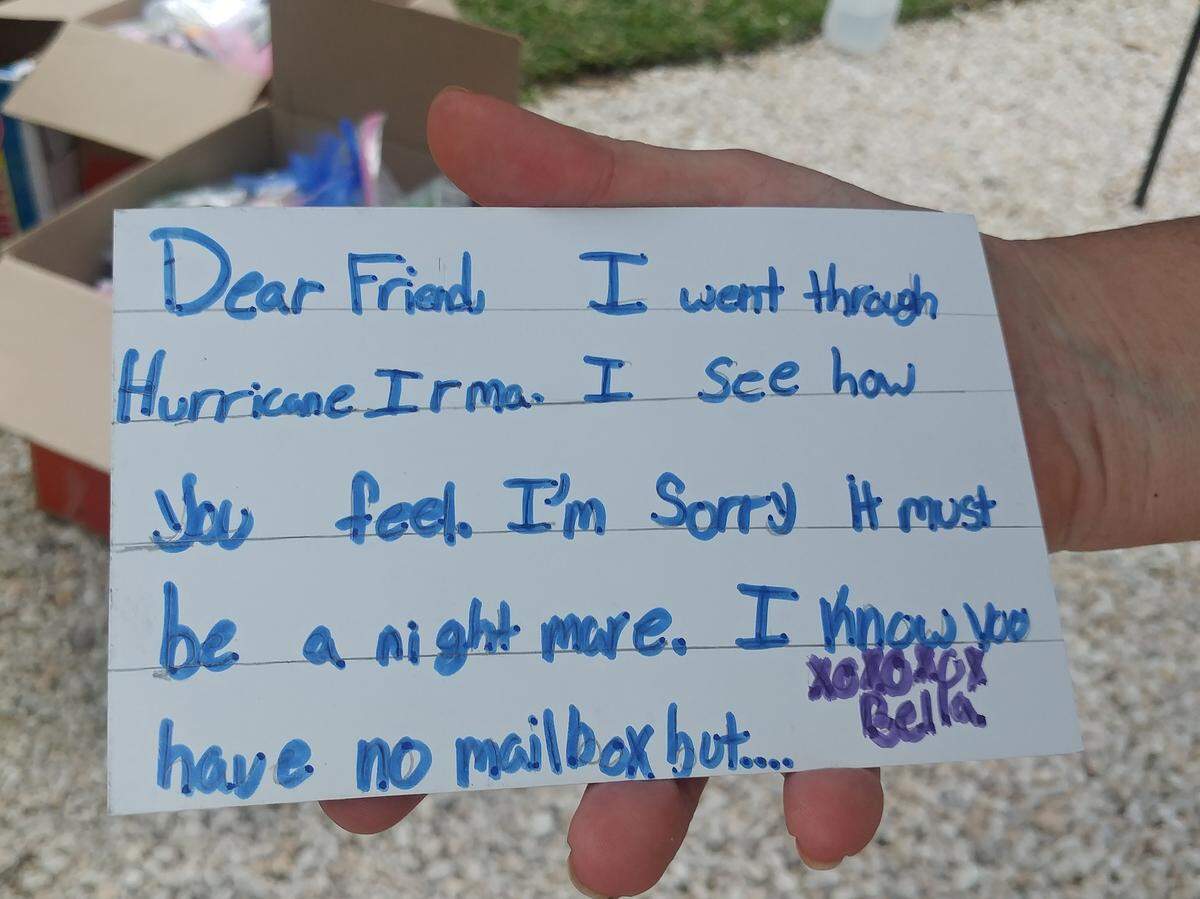 Dear Friend, I went through
Hurricane Irma. I see how
you feel. I'm Sorry it must
be a night mare. I know you
xoxoxox
Bella
have no mailbox but....